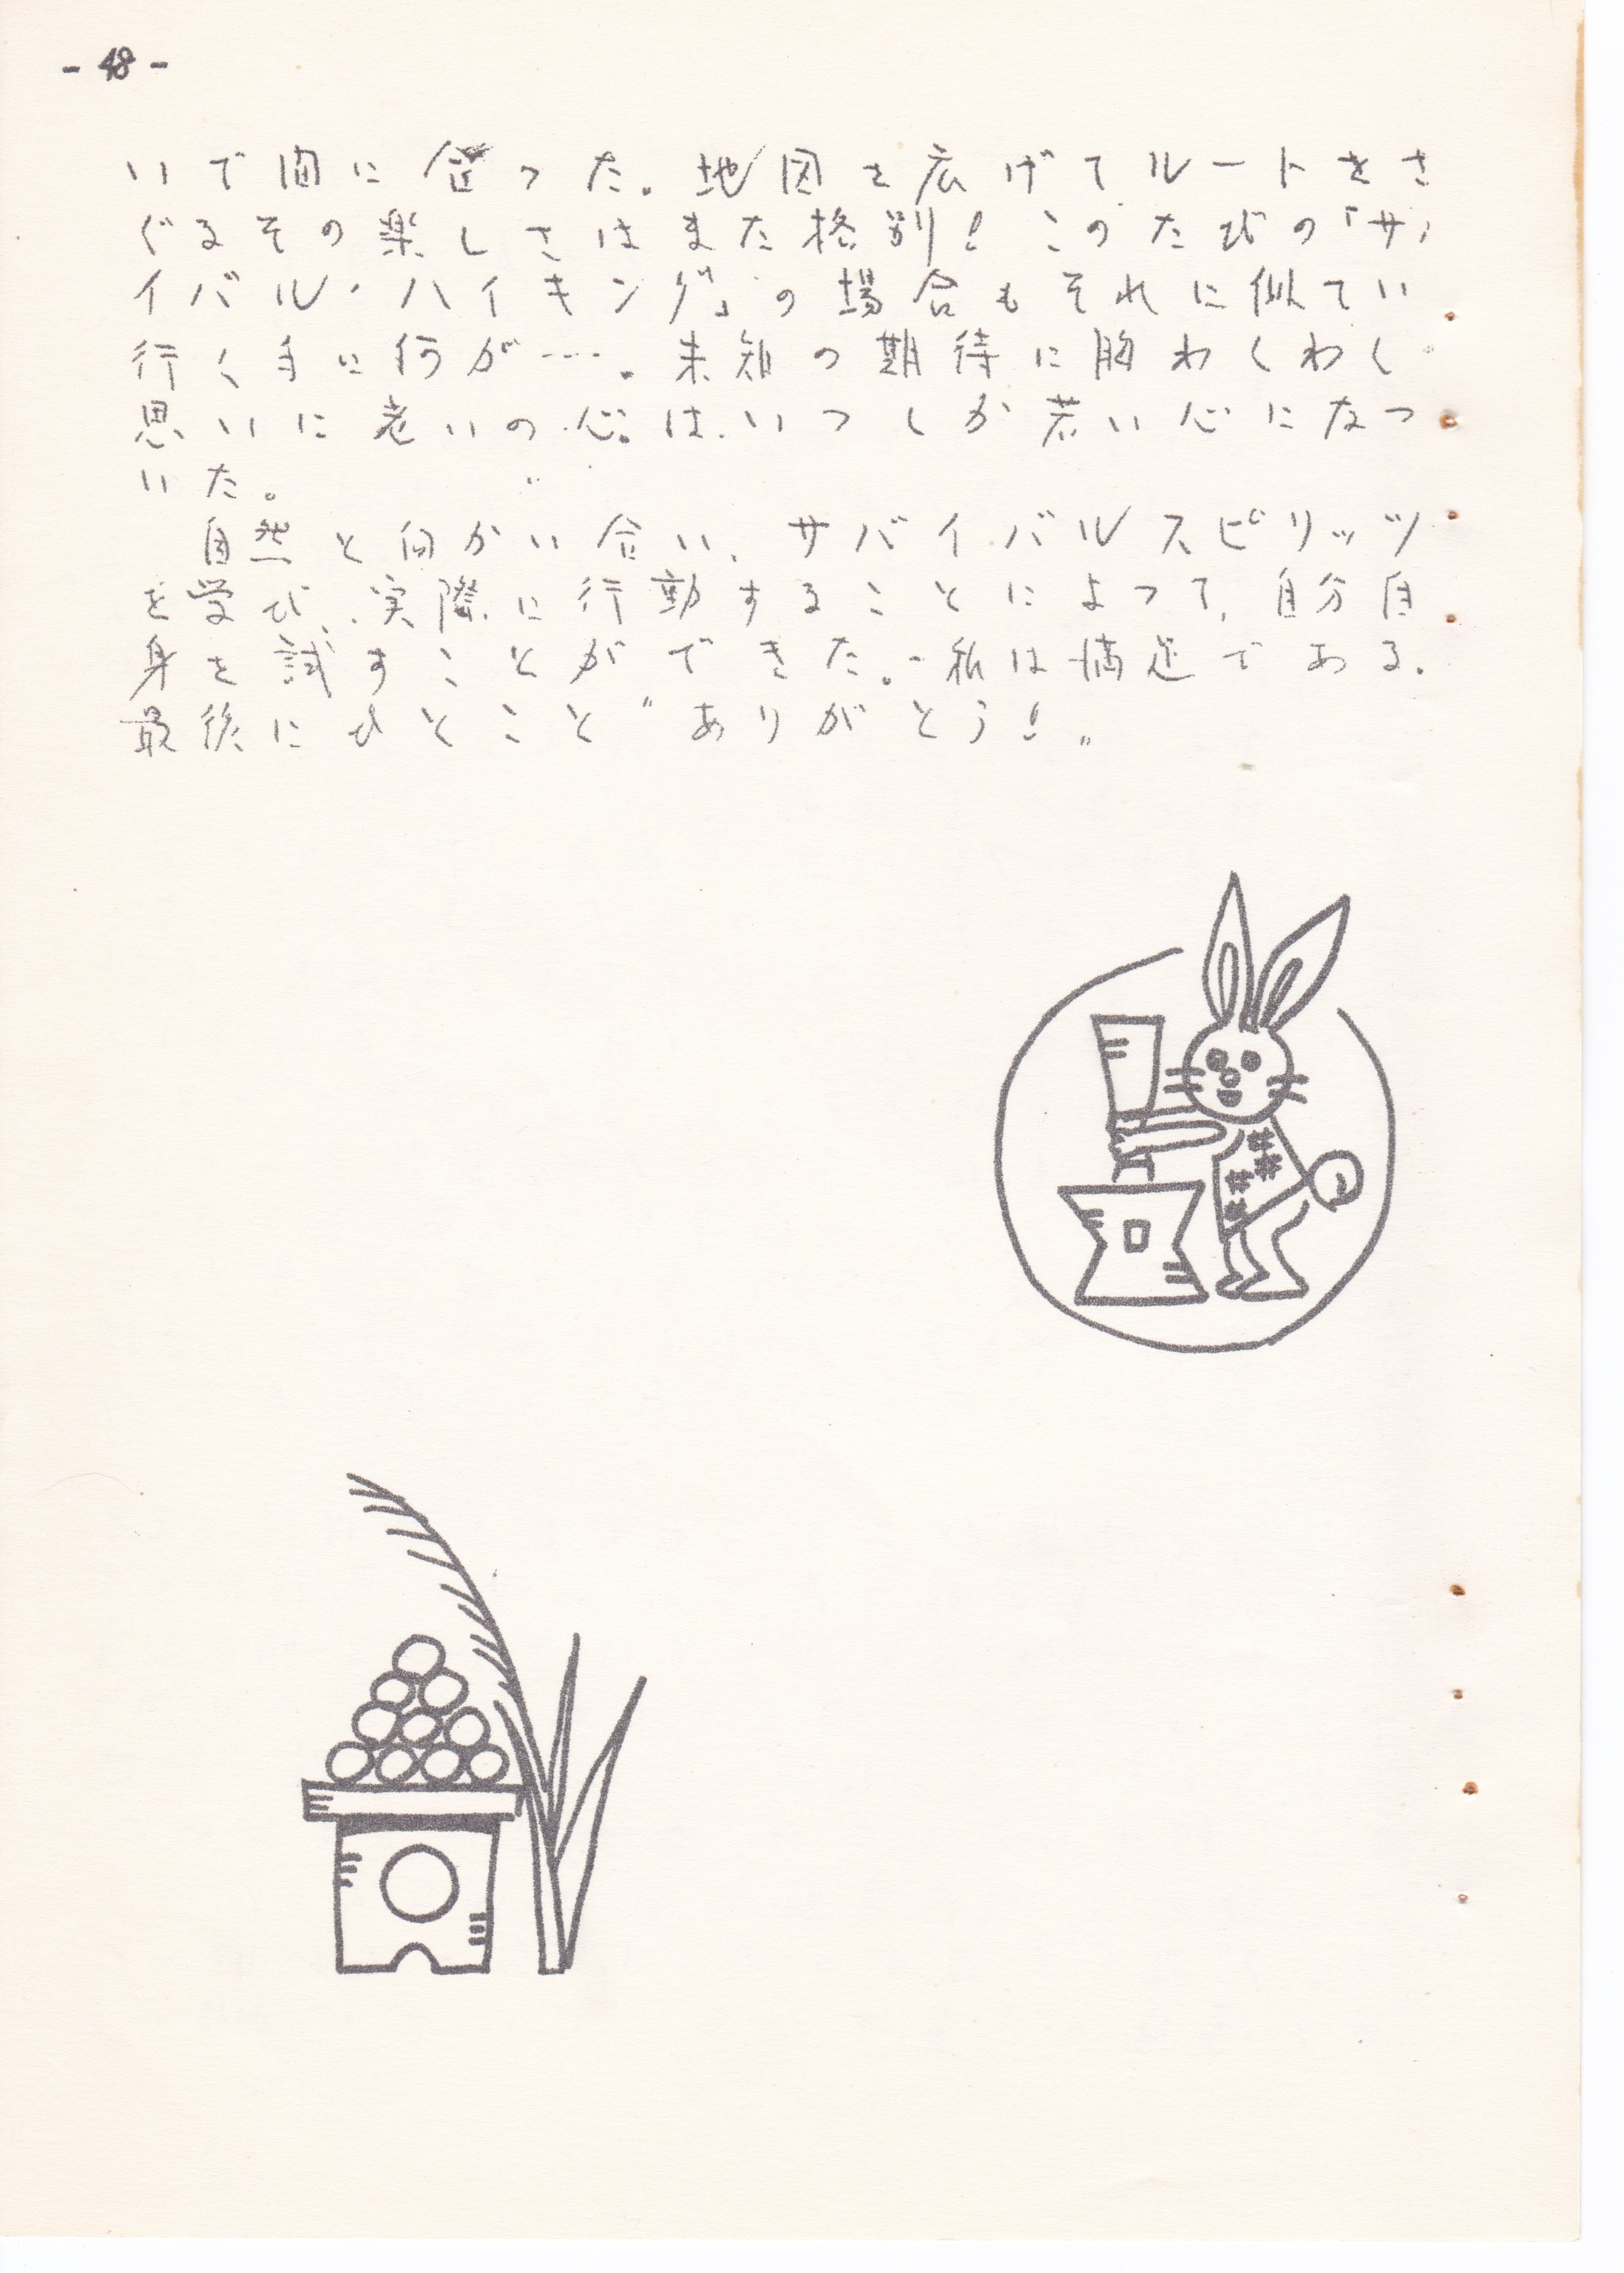 - 48 -
いで間に合った。地図を広げてルートをさ
ぐるその楽しさはまた格別！このたびの「サ
イバル・ハイキング」の場合もそれに似てい
行く手に何が…。未知の期待に胸わくわく
思いに老いの心は、いつしか若い心になっ
いた。
自然と向かい合い、サバイバルスピリッツ
を学び、実際に行動することによって、自分自
身を試すことができた。私は満足である。
最後にひとこと〝ありがとう！〟